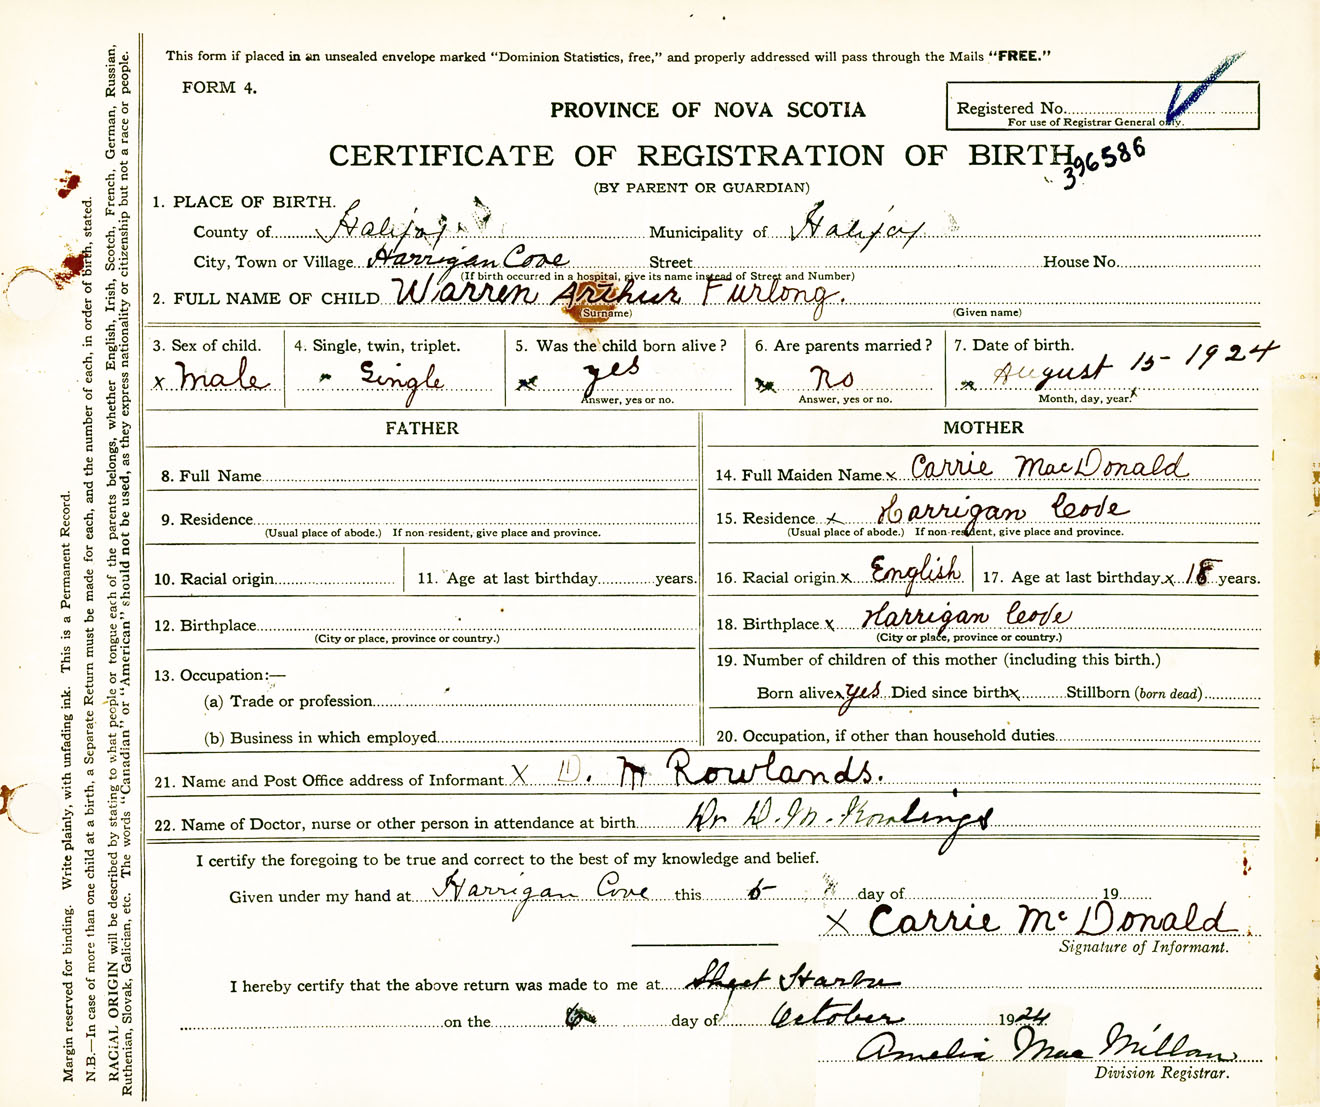 This form if placed in an unsealed envelope marked “Dominion Statistics, free,” and properly addressed will pass through the Mails “FREE.”
FORM 4.
Registered No.
For use of Registrar General only.
PROVINCE OF NOVA SCOTIA
CERTIFICATE OF REGISTRATION OF BIRTH
396586
(BY PARENT OR GUARDIAN)
1. PLACE OF BIRTH.
County of Halifax Municipality of Halifax
City, Town or Village Harrigan Cove Street House No.
(If birth occurred in a hospital, give its name instead of Street and Number)
2. FULL NAME OF CHILD Warren Arthur Furlong.
(Surname) (Given name)
3. Sex of child. 4. Single, twin, triplet. 5. Was the child born alive? 6. Are parents married? 7. Date of birth.
x Male Single x yes x No x August 15 - 1924
Answer, yes or no. Answer, yes or no. Month, day, year. x
FATHER MOTHER
8. Full Name 14. Full Maiden Name x Carrie MacDonald
9. Residence 15. Residence x Harrigan Cove
(Usual place of abode.) If non-resident, give place and province. (Usual place of abode.) If non-resident, give place and province.
10. Racial origin 11. Age at last birthday years. 16. Racial origin x English 17. Age at last birthday x 18 years.
12. Birthplace 18. Birthplace x Harrigan Cove
(City or place, province or country.) (City or place, province or country.)
13. Occupation:— 19. Number of children of this mother (including this birth.)
(a) Trade or profession Born alive x yes Died since birth x Stillborn (born dead)
(b) Business in which employed 20. Occupation, if other than household duties
21. Name and Post Office address of Informant X D. M Rowlands.
22. Name of Doctor, nurse or other person in attendance at birth Dr D. M. Rowlings
I certify the foregoing to be true and correct to the best of my knowledge and belief.
Given under my hand at Harrigan Cove this 6 day of 19
X Carrie McDonald
Signature of Informant.
I hereby certify that the above return was made to me at Sheet Harbor
on the 6 day of October 1924
Amelia MacMillan
Division Registrar.
Margin reserved for binding. Write plainly, with unfading ink. This is a Permanent Record.
N.B.—In case of more than one child at a birth, a Separate Return must be made for each, and the number of each, in order of birth, stated.
RACIAL ORIGIN will be described by stating to what people or tongue each of the parents belongs, whether English, Irish, Scotch, French, German, Russian,
Ruthenian, Slovak, Galician, etc. The words “Canadian” or “American” should not be used, as they express nationality or citizenship but not a race or people.